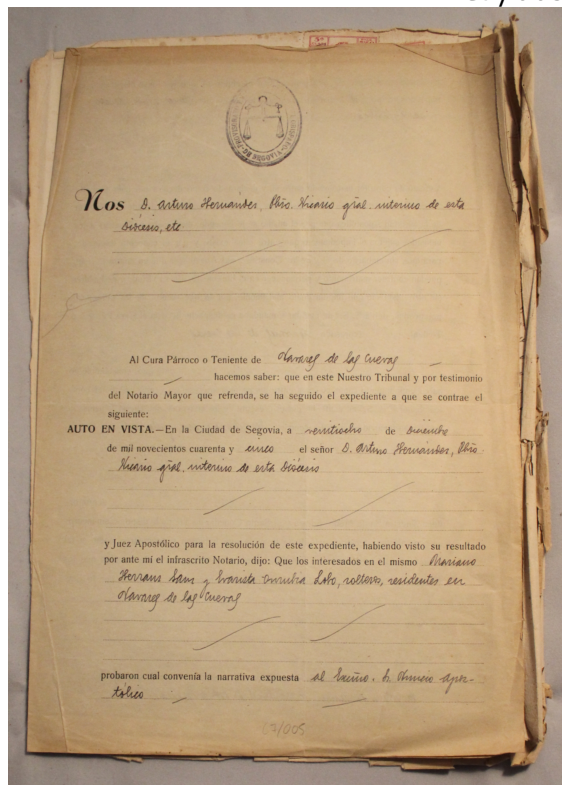 Nos D. Arturo Hernández, Pbro. Vicario gral. interino de esta
Diócesis, etc
Al Cura Párroco o Teniente de Navares de las Cuevas
hacemos saber: que en este Nuestro Tribunal y por testimonio
del Notario Mayor que refrenda, se ha seguido el expediente a que se contrae el
siguiente:
AUTO EN VISTA.—En la Ciudad de Segovia, a veintiocho de
de mil novecientos cuarenta y cinco el señor D. Arturo Hernández, Pbro.
Vicario gral. interino de esta Diócesis
y Juez Apostólico para la resolución de este expediente, habiendo visto su resultado
por ante mí el infrascrito Notario, dijo: Que los interesados en el mismo Mariano
Herranz Sanz y Evarista Lobo, solteros, residentes en
Navares de las Cuevas
probaron cual convenía la narrativa expuesta al Excmo. Sr. Nuncio Apos-
tólico
67/005